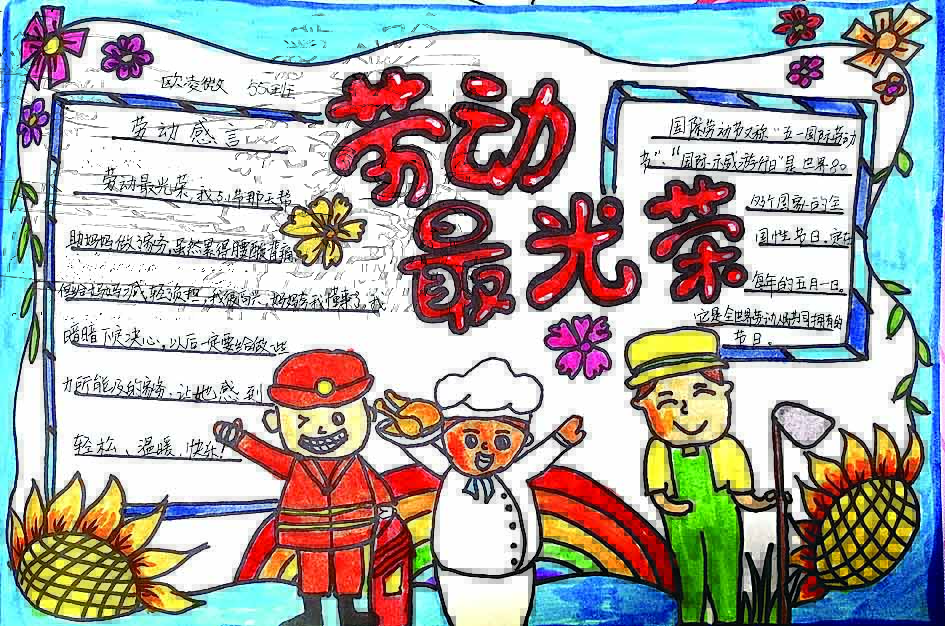 欧凌微 55班
劳动最光荣
劳动感言
劳动最光荣,我劳动节那天帮
助妈妈做家务,虽然累得腰酸背痛,
但给妈妈减轻负担,我很高兴,妈妈夸我懂事了,我
暗暗下定决心,以后一定要给做一些
力所能及的家务,让她感到
轻松、温暖、快乐!
国际劳动节又称“五一国际劳动
节”、“国际示威游行日”是世界80
多个国家的全
国性节日。定在
每年的五月一日。
它是全世界劳动人民共同拥有的
节日。